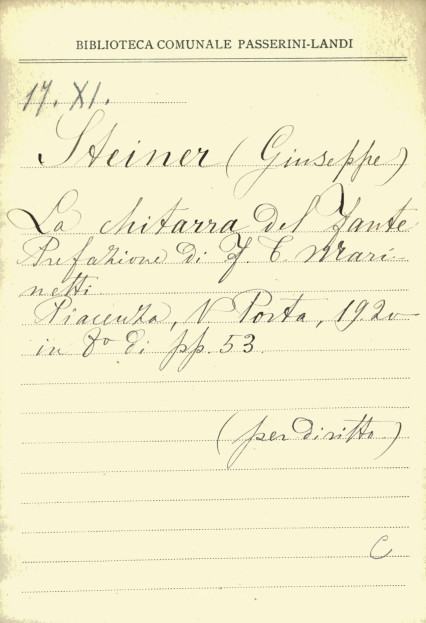 BIBLIOTECA COMUNALE PASSERINI-LANDI
17. XI.
Steiner (Giuseppe)
La chitarra del fante
Prefazione di F. T. Mari-
netti
Piacenza, V Porta, 1920
in 8° di pp. 53
(per diritto)
C